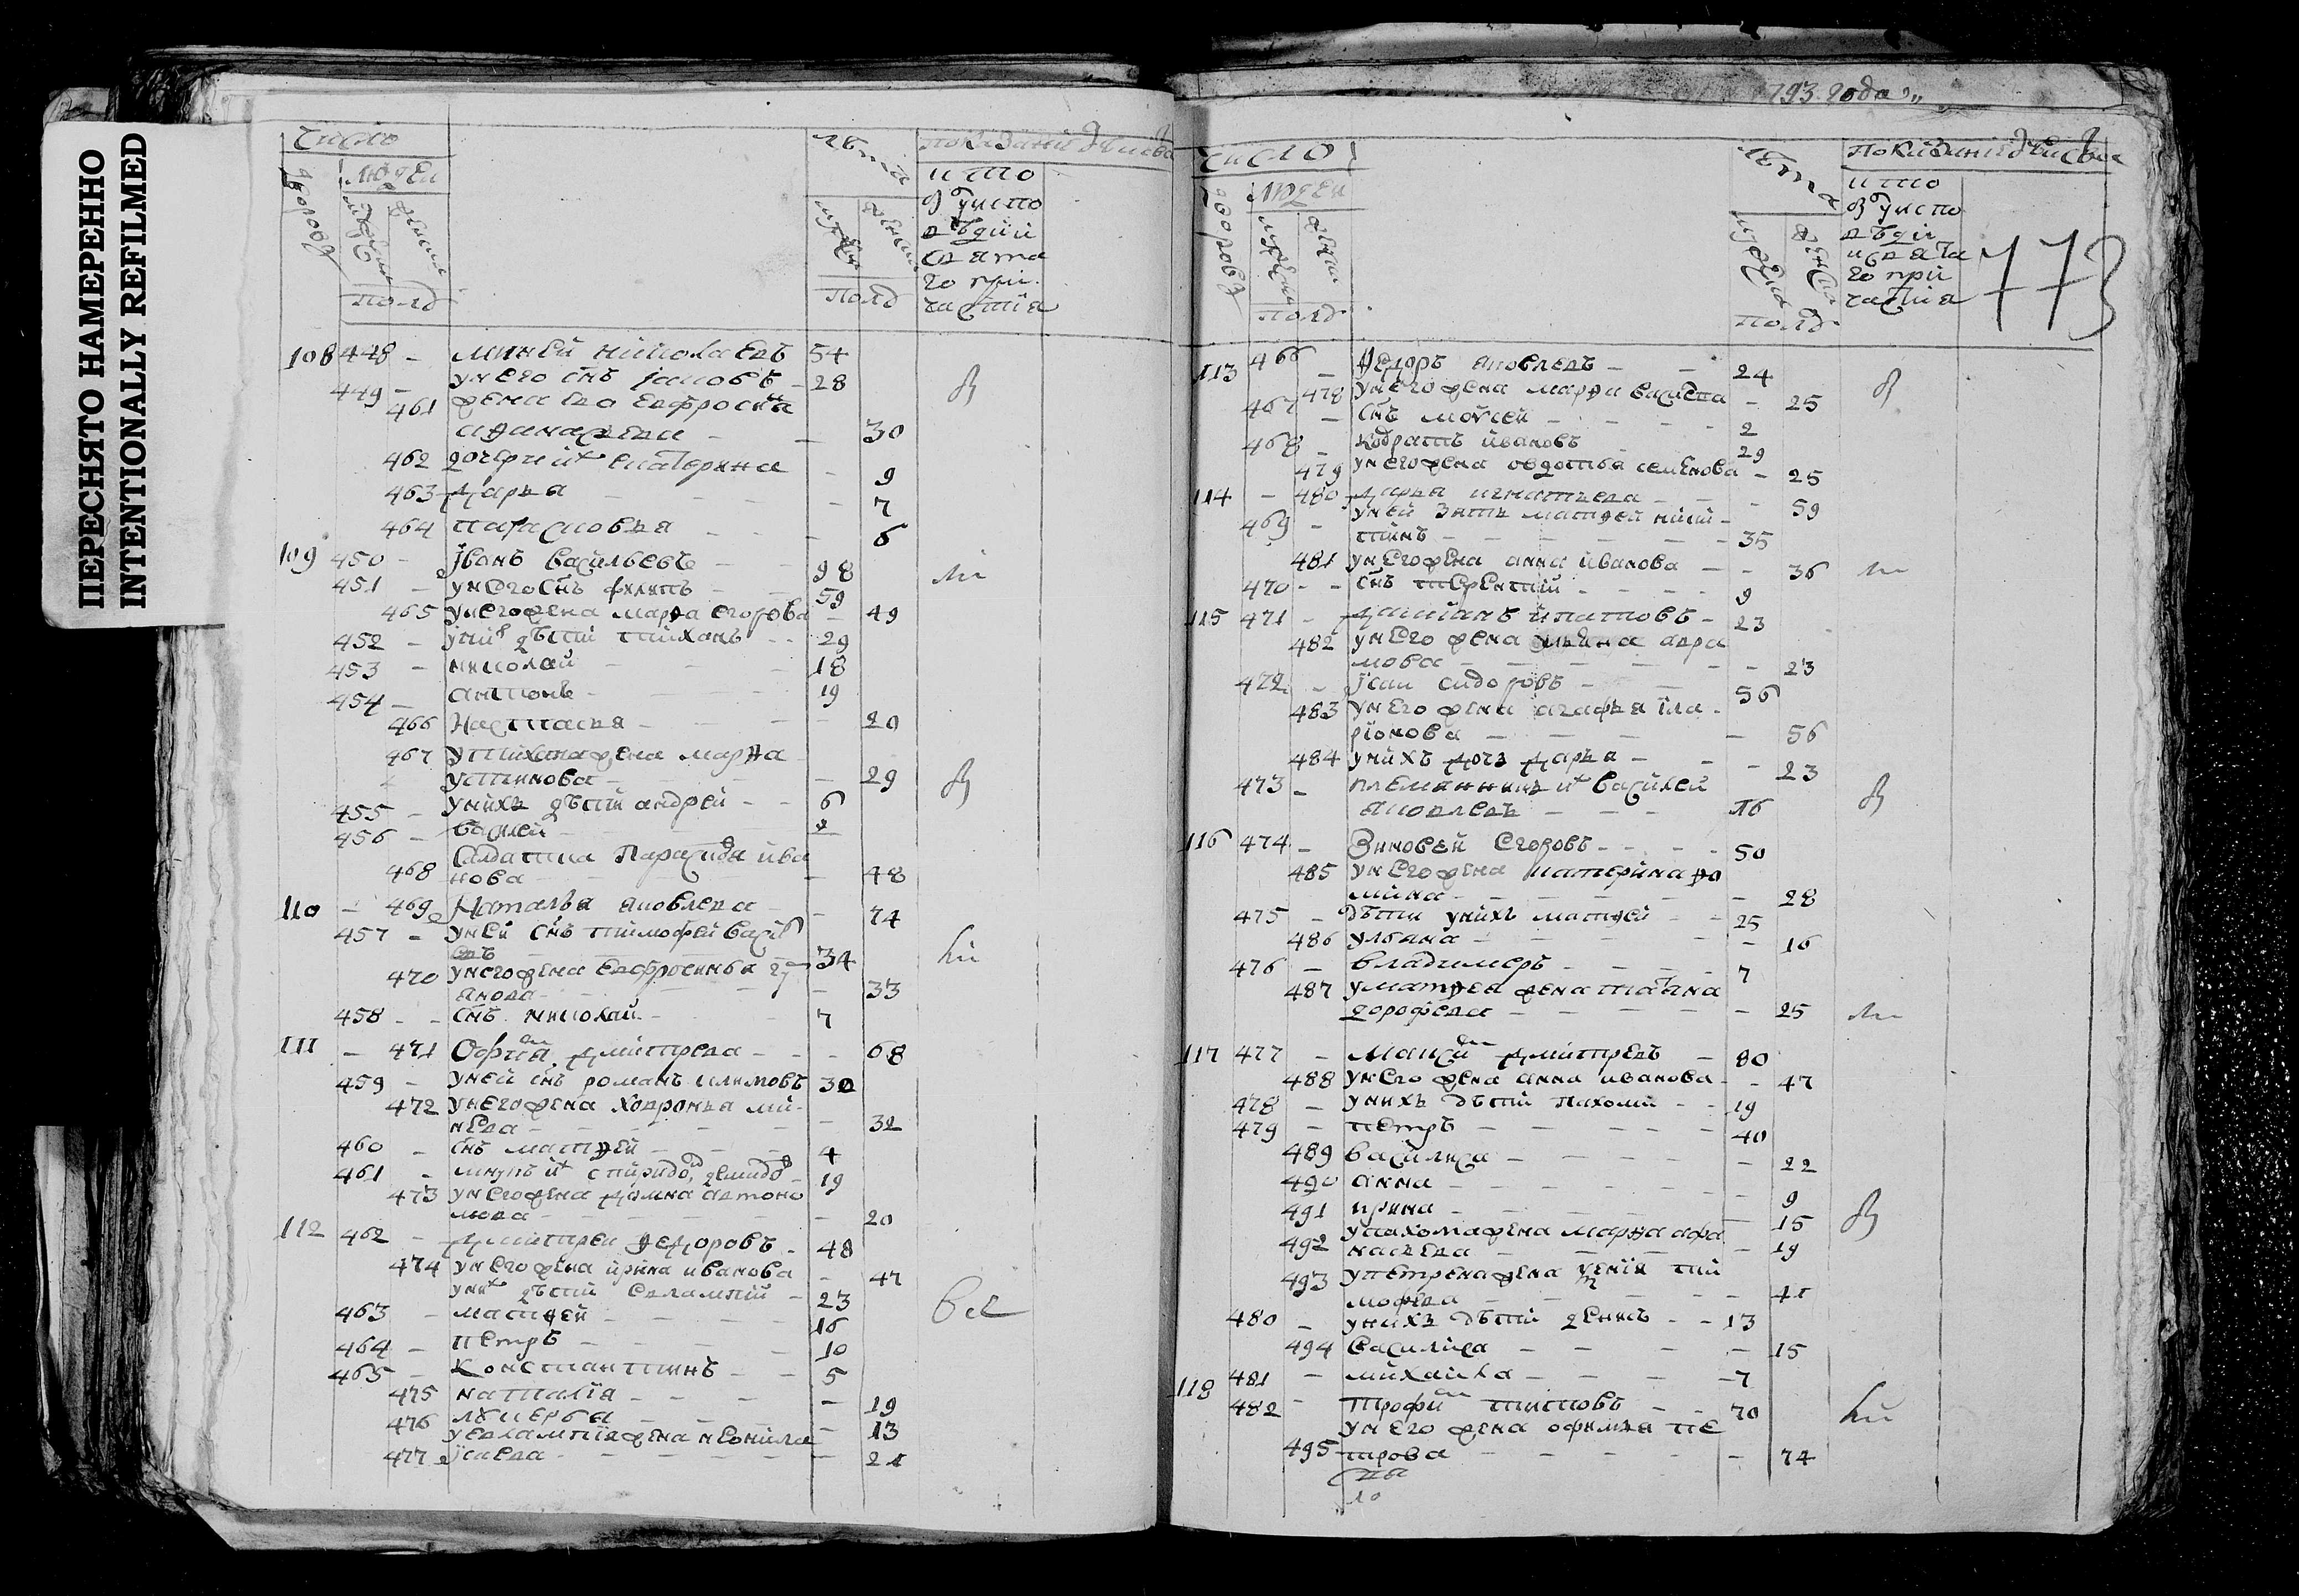 ПЕРЕСНЯТО НАМЕРЕННО
INTENTIONALLY REFILMED
число
людей
дворовъ
мужеска
женска
полъ
лѣта
мужеска
женска
полъ
показаніе дѣйства
и кто
былъ у испо
вѣди
свята
го при
частія
108 448 - минѣй николаевъ 54
449 - у него снъ іаковъ - 28
461 жена ево евфросинiа
афанасьева - - 30
462 дочери ихъ екатерина - 9
463 дарья - - 7
464 парасковья - - 6
109 450 - іванъ васильевъ - 98
451 - у него снъ филипъ - 59
465 у него жена марѳа егорова - 49
452 - у нихъ дѣти тихонъ - - 29
453 - николай - - 18
454 - антонъ - - 19
466 настасья - - 20
467 у тихона жена марѳа
устинова - - 29
455 - у нихъ дѣти андрей - - 6
456 - васлей - 2
салдатка параскида ива
468 нова - - 48
110 - 469 наталья яковлева - - 74
457 - у ней снъ тимофей васил
евъ - 34
470 у него жена евфросинья
- 33
458 - - снъ николай - 7
111 - 471 офимiя дмитрева - - - 68
459 - у ней снъ романъ климовъ 30
472 у него жена ховронья ми-
нева - - - 32
460 - снъ матѳей - - - 4
461 - внукъ ихъ спиридонъ демидовъ - 19
473 у него жена домна автоно
мова - - - 20
112 462 - дмитреи ѳедоровъ - 48
474 у него жена ирина иванова - 47
у нихъ дѣти евлампiй - 23
463 - матѳей - - - 16
464 - петръ - - - 10
465 - константинъ - - 5
475 наталiя - - - - 19
476 лукерья - - - - 13
у евлампiя жена неонила
477 исаева - - - - 21
1793 года
число
людей
дворовъ
мужеска
женска
полъ
лѣта
мужеска
женска
полъ
показаніе дѣйства
и кто
былъ у испо
вѣди
и свята
го при
частія
173
113 466 - ѳедоръ яковлевъ - - 24
478 у него жена марѳа - 25
467 - снъ мойсей - - - 2
468 - кодратъ ивановъ - 29
479 у него жена овдотья семенова - 25
114 - 480 дарья игнатьева - - 59
469 - у ней зять матѳей ники-
тинъ - - - 35
481 у него жена анна иванова - - 36
470 - - снъ терентий - - - 9
115 471 - дамианъ ипатовъ - 23
482 у него жена авра
мова - - - 23
472 - исаи сидоровъ - 56
483 у него жена агафья ила-
рiонова - - - 56
484 у нихъ дочь дарья - - - 23
473 - племянникъ ихъ василей
яковлевъ - - - 16
116 474 - зиновей егоровъ - - - - 50
485 у него жена катерина ѳо
мина - - - 28
475 - дѣти у нихъ матѳей - - 25
486 ульяна - - - - 16
476 - владимеръ - - - - 7
487 у матѳея жена татiана
дорофеева - - - - - 25
117 477 - максимъ дмитревъ - 80
488 у него жена анна иванова - - 47
478 - у нихъ дѣти пахомий - - 19
479 - петръ - - - - 40
489 василиса - - - - - 22
490 анна - - - - 9
491 ирина - - - - - 15
у пахома жена марѳа афа
492 насьева - - - - 19
493 у петра жена ксения тим
мофеева - - - - 41
480 - у нихъ дѣти денисъ - - 13
494 василиса - - - - 15
118 481 - михаила - - - - 7
482 - трофимъ титовъ - - 70
у него жена офимья пе
495 трова - - - - - 74